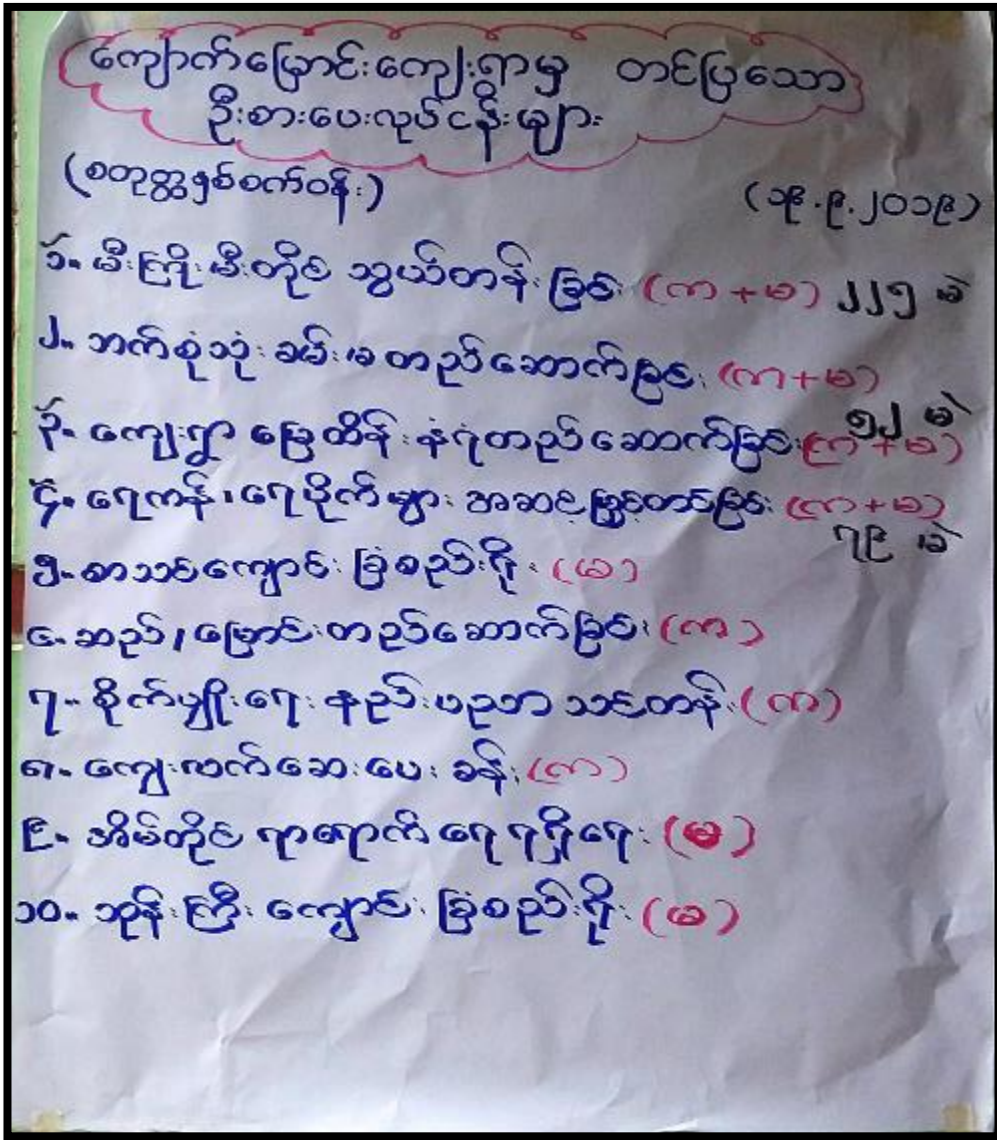 ကျောက်မြောင်းကျေးရွာမှ တင်ပြသော
ဦးစားပေးလုပ်ငန်းများ
(စတုတ္ထနှစ်စက်ဝန်း)
(၁၉.၉.၂၀၁၉)
၁။ မီးကြိုးမီးတိုင် သွယ်တန်းခြင်း (က+မ) ၂၂၅ မဲ
၂။ ဘက်စုံသုံးခမ်းမတည်ဆောက်ခြင်း (က+မ)
၅၂ မဲ
၃။ ကျေးရွာ မြေထိန်းနံရံတည်ဆောက်ခြင်း (က+မ)
၄။ ရေကန်၊ ရေပိုက်များ အဆင့်မြှင့်တင်ခြင်း (က+မ)
၇၉ မဲ
၅။ စာသင်ကျောင်း ခြံစည်းရိုး (မ)
၆။ ဆည်/မြောင်းတည်ဆောက်ခြင်း (က)
၇။ စိုက်ပျိုးရေး နည်းပညာ သင်တန်း (က)
၈။ ကျေးလက်ဆေးပေးခန်း (က)
၉။ အိမ်တိုင်ရာရောက် ရေရရှိရေး (မ)
၁၀။ ဘုန်းကြီးကျောင်း ခြံစည်းရိုး (မ)